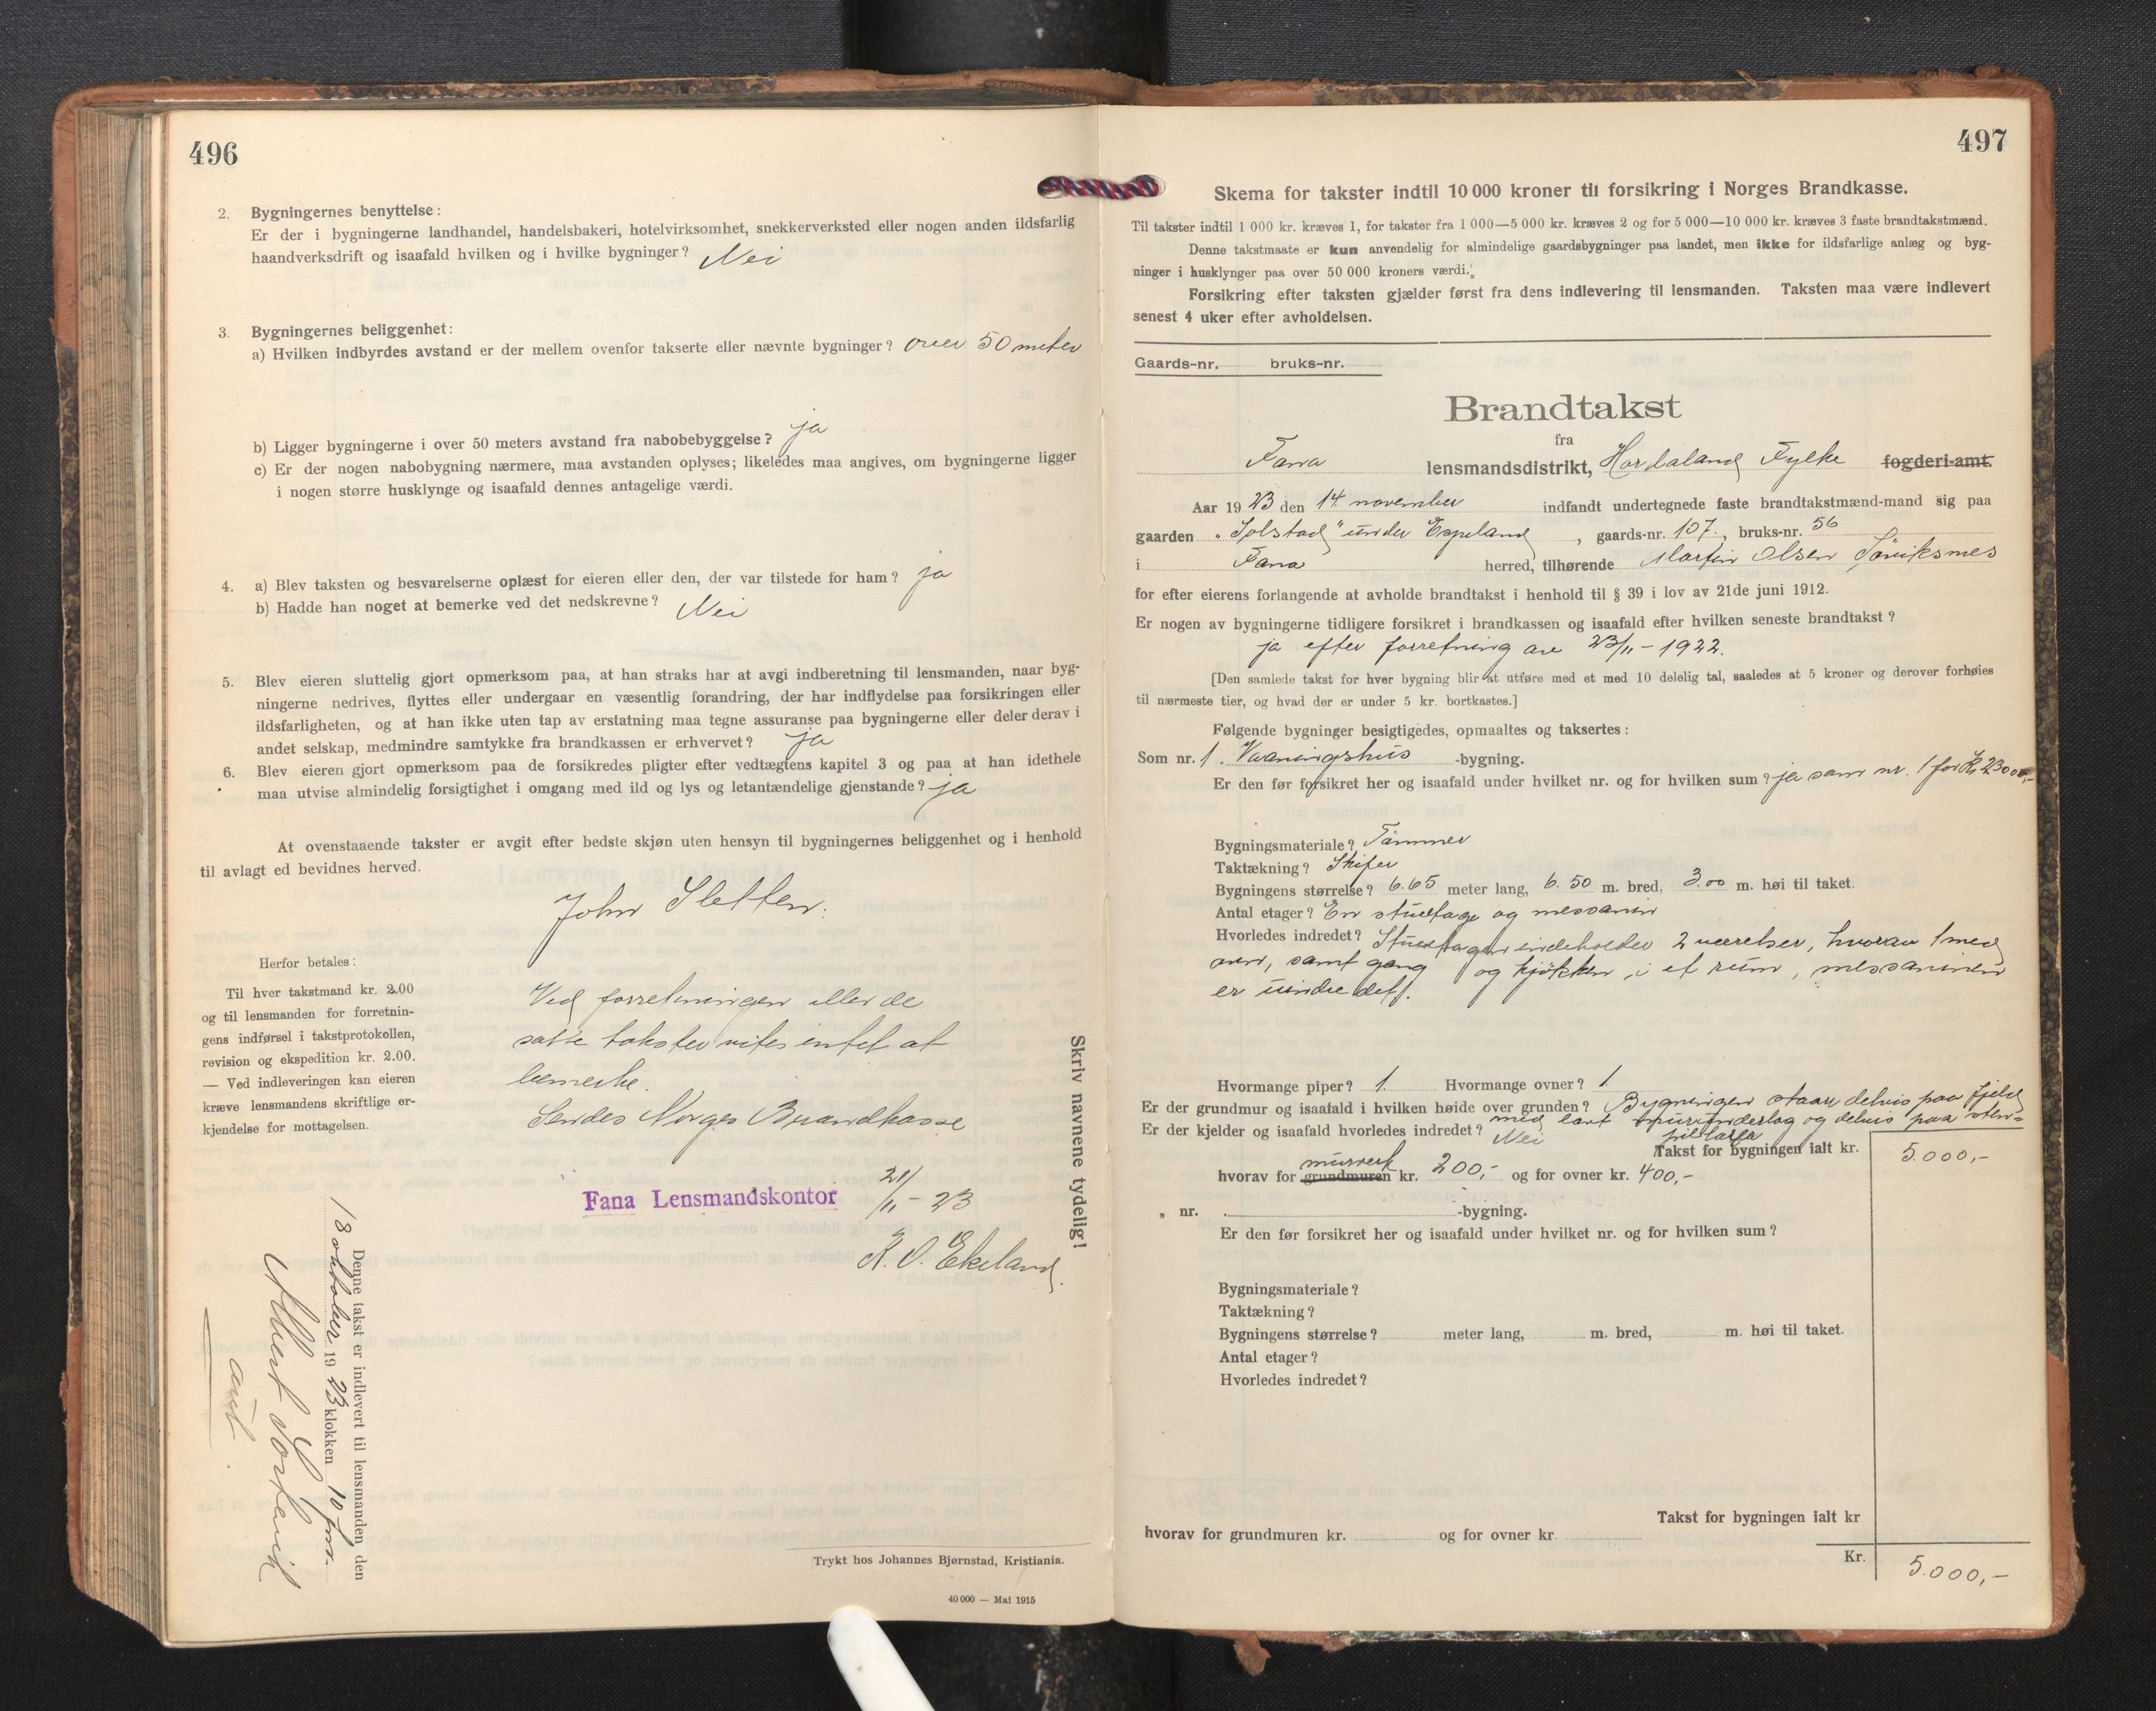 496
2. Bygningernes benyttelse:
Er der i bygningerne landhandel, handelsbakeri, hotelvirksomhet, snekkerverksted eller nogen anden ildsfarlig
haandverksdrift og isaafald hvilken og i hvilke bygninger? Nei
3. Bygningernes beliggenhet:
a) Hvilken indbyrdes avstand er der mellem ovenfor takserte eller nævnte bygninger? over 50 meter
b) Ligger bygningerne i over 50 meters avstand fra nabobebyggelse? ja
c) Er der nogen nabobygning nærmere, maa avstanden oplyses; likeledes maa angives, om bygningerne ligger
i nogen større husklynge og isaafald dennes antagelige værdi.
4. a) Blev taksten og besvarelserne oplæst for eieren eller den, der var tilstede for ham? ja
b) Hadde han noget at bemerke ved det nedskrevne? Nei
5. Blev eieren sluttelig gjort opmerksom paa, at han straks har at avgi indberetning til lensmanden, naar byg-
ningerne nedrives, flyttes eller undergaar en væsentlig forandring, der har indflydelse paa forsikringen eller
ildsfarligheten, og at han ikke uten tap av erstatning maa tegne assuranse paa bygningerne eller deler derav i
andet selskap, medmindre samtykke fra brandkassen er erhvervet? ja
6. Blev eieren gjort opmerksom paa de forsikredes pligter efter vedtægtens kapitel 3 og paa at han idethele
maa utvise almindelig forsigtighet i omgang med ild og lys og letantændelige gjenstande? ja
At ovenstaaende takster er avgit efter bedste skjøn uten hensyn til bygningernes beliggenhet og i henhold
til avlagt ed bevidnes herved.
John Sletten.
Herfor betales:
Til hver takstmand kr. 2.00
og til lensmanden for forretnin-
gens indførsel i takstprotokollen,
revision og ekspedition kr. 2.00.
— Ved indleveringen kan eieren
kræve lensmandens skriftlige er-
kjendelse for mottagelsen.
Ved forretningen eller de
satte takster vites intet at
bemerke.
Sendes Norges Brandkasse
Fana Lensmandskontor 21/11 - 23
K. O. Ekeland.
Skriv navnene tydelig!
Denne takst er indlevert til lensmanden den
18 oktober 1923 klokken 10 fm.
Albert
aut
Trykt hos Johannes Bjørnstad, Kristiania.
40 000 — Mai 1915
497
Skema for takster indtil 10 000 kroner til forsikring i Norges Brandkasse.
Til takster indtil 1 000 kr. kræves 1, for takster fra 1 000—5 000 kr. kræves 2 og for 5 000—10 000 kr. kræves 3 faste brandtakstmænd.
Denne takstmaate er kun anvendelig for almindelige gaardsbygninger paa landet, men ikke for ildsfarlige anlæg og byg-
ninger i husklynger paa over 50 000 kroners værdi.
Forsikring efter taksten gjælder først fra dens indlevering til lensmanden. Taksten maa være indlevert
senest 4 uker efter avholdelsen.
Gaards-nr. bruks-nr.
Brandtakst
fra
Fana lensmandsdistrikt, Hordaland Fylke fogderi-amt.
Aar 1923 den 14. november indfandt undertegnede faste brandtakstmænd-mand sig paa
gaarden "Solstad" under Espeland, gaards-nr. 107., bruks-nr. 56
i Fana herred, tilhørende Martin Olsen Søviksnes
for efter eierens forlangende at avholde brandtakst i henhold til § 39 i lov av 21de juni 1912.
Er nogen av bygningerne tidligere forsikret i brandkassen og isaafald efter hvilken seneste brandtakst?
ja efter forretning av 23/11 - 1922.
[Den samlede takst for hver bygning blir at utføre med et med 10 delelig tal, saaledes at 5 kroner og derover forhøies
til nærmeste tier, og hvad der er under 5 kr. bortkastes.]
Følgende bygninger besigtigedes, opmaaltes og taksertes:
Som nr. 1. Vaaningshus -bygning.
Er den før forsikret her og isaafald under hvilket nr. og for hvilken sum? ja som nr. 1 for Kr 2300,-
Bygningsmateriale? Tømmer
Taktækning? Skifer
Bygningens størrelse? 6.65 meter lang, 6.50 m. bred, 3.00 m. høi til taket.
Antal etager? En stueetage og messanin
Hvorledes indredet? Stueetagen indeholder 2 værelser, hvorav 1 med
ovn, samt gang og kjøkken i et rum, messaninen
er uindredet.
Hvormange piper? 1. Hvormange ovner? 1
Er der grundmur og isaafald i hvilken høide over grunden? Bygningen staar delvis paa fjeld
med lavt murunderlag og delvis paa sten-
pillarer
Er der kjelder og isaafald hvorledes indredet? Nei
Takst for bygningen ialt kr. 5.000,-
hvorav for grundmuren murverk kr. 200,- og for ovner kr. 400,-
„ nr. -bygning.
Er den før forsikret her og isaafald under hvilket nr. og for hvilken sum?
Bygningsmateriale?
Taktækning?
Bygningens størrelse? meter lang, m. bred, m. høi til taket.
Antal etager?
Hvorledes indredet?
Takst for bygningen ialt kr
hvorav for grundmuren kr. og for ovner kr.
Kr. 5.000,-